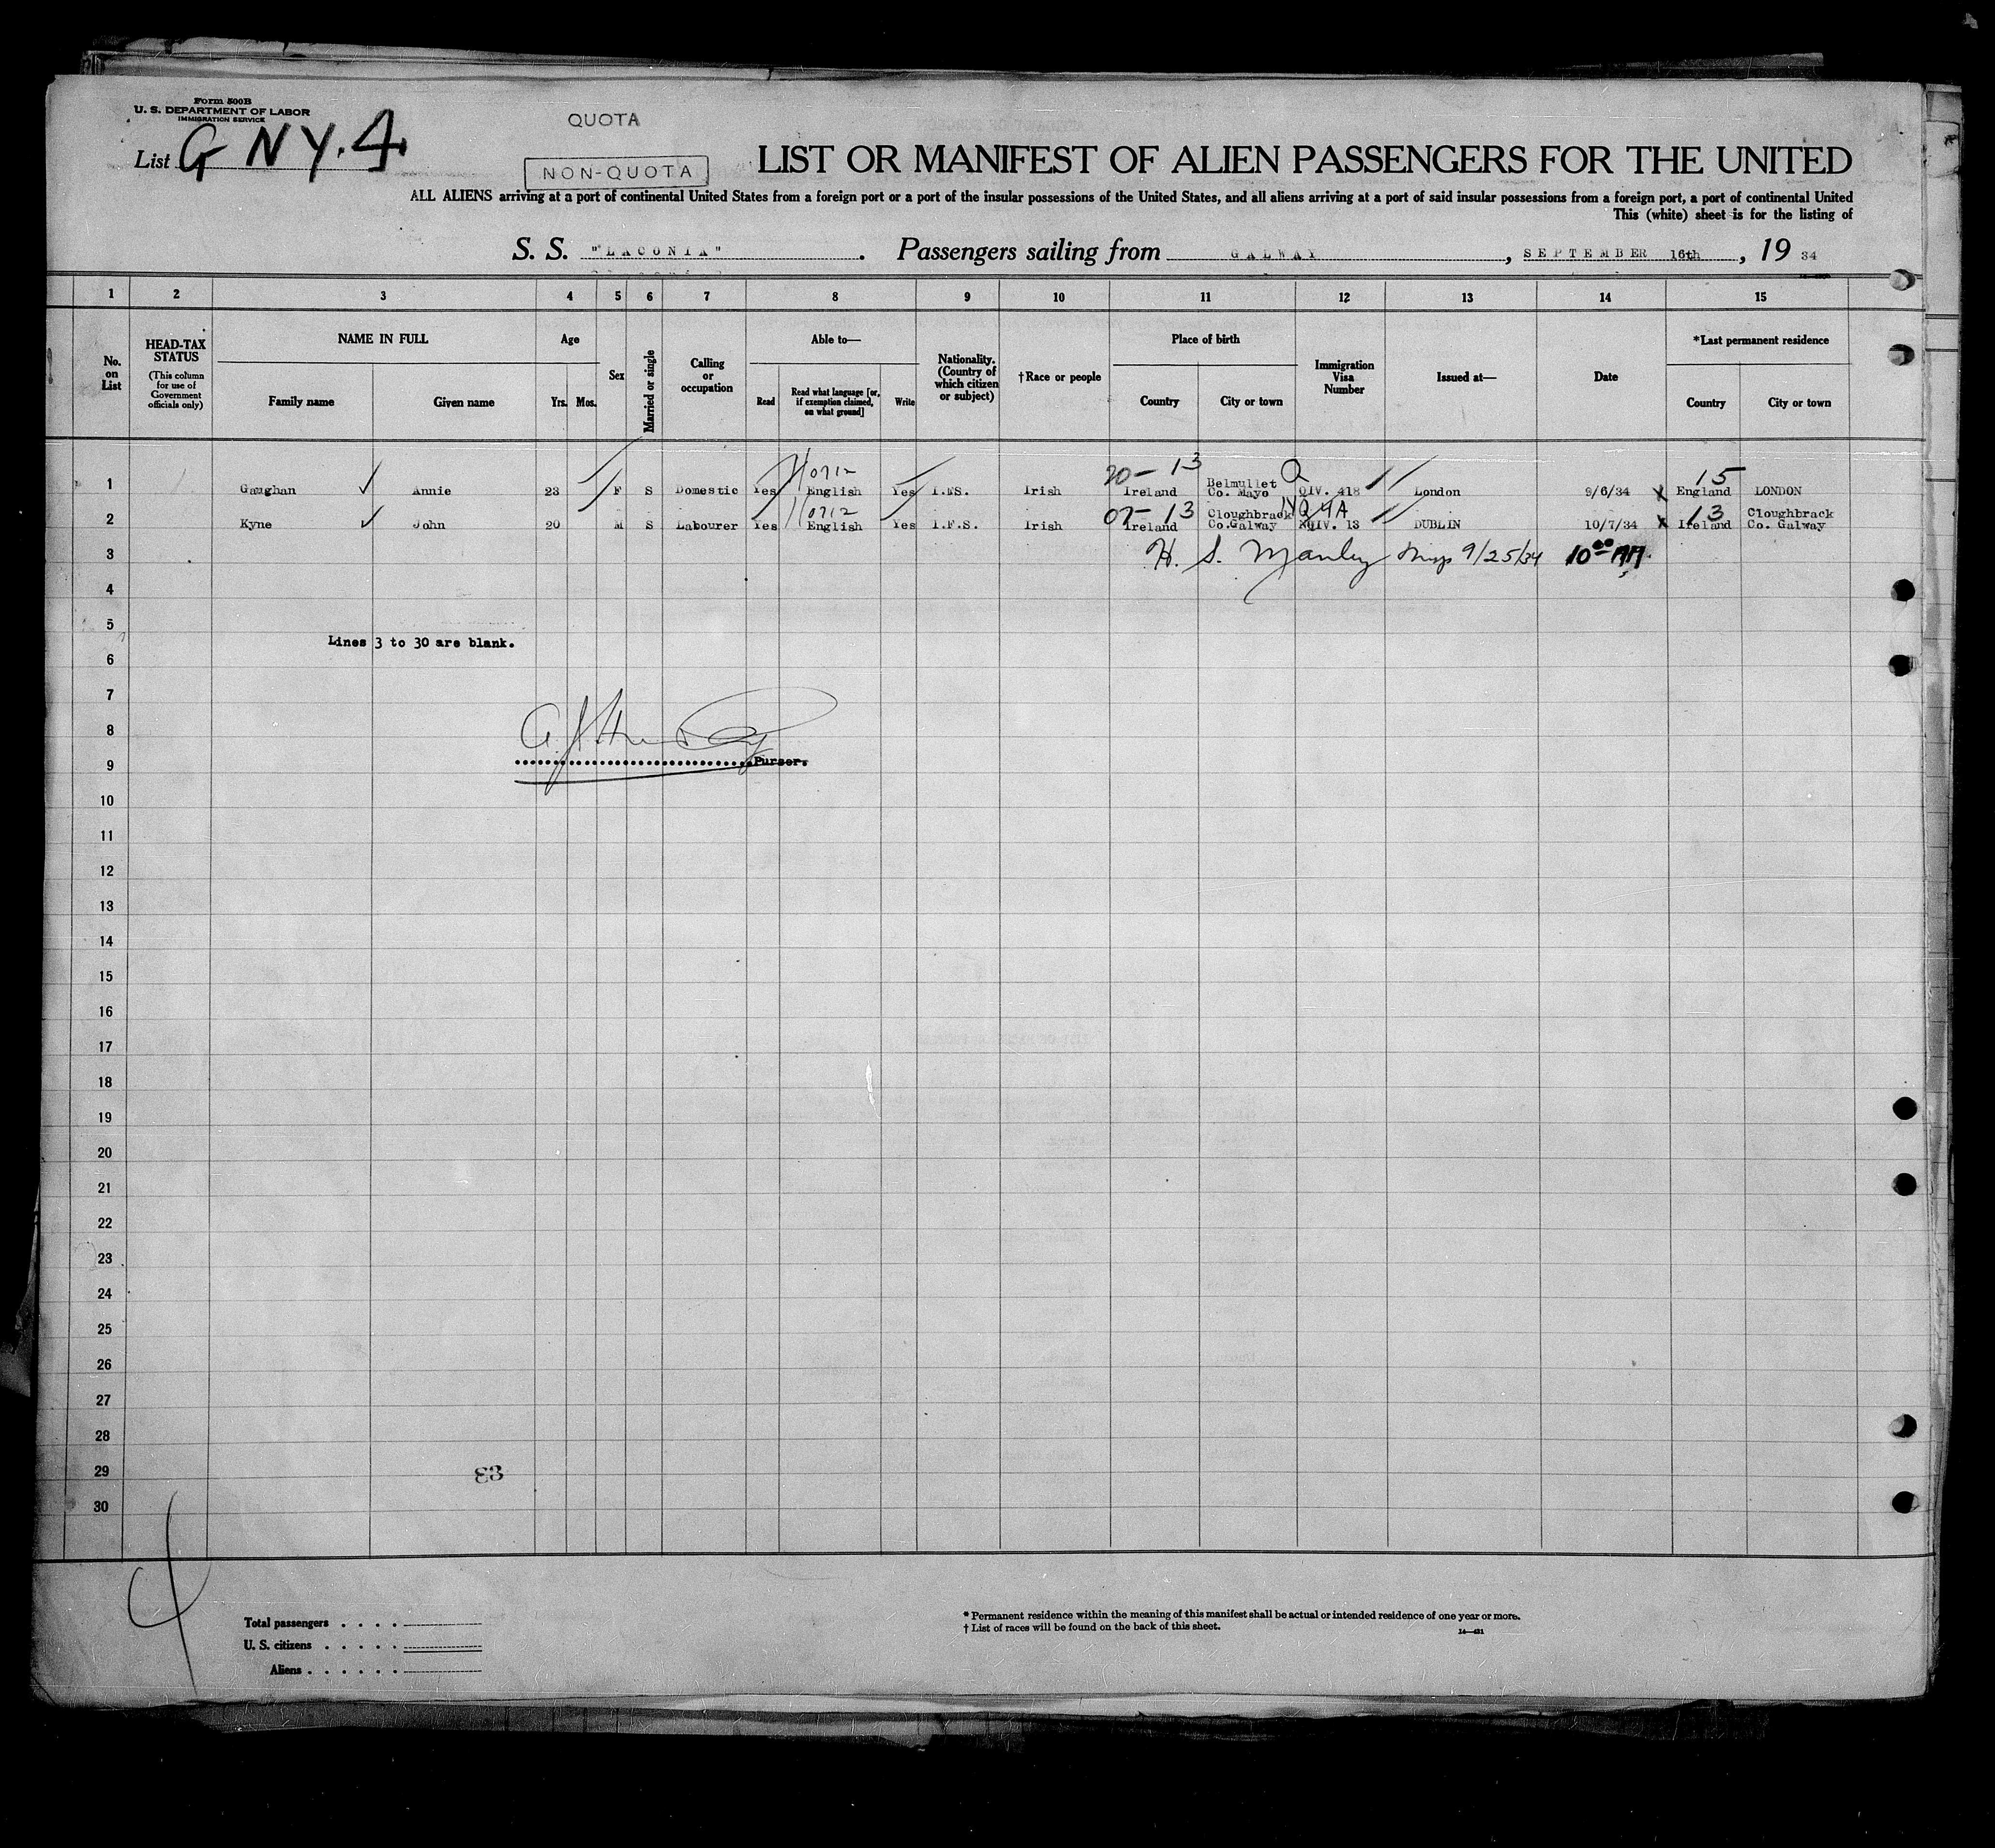 Form 500B
U. S. DEPARTMENT OF LABOR
IMMIGRATION SERVICE
List G NY. 4
QUOTA
NON-QUOTA
LIST OR MANIFEST OF ALIEN PASSENGERS FOR THE UNITED
ALL ALIENS arriving at a port of continental United States from a foreign port or a port of the insular possessions of the United States, and all aliens arriving at a port of said insular possessions from a foreign port, a port of continental United
This (white) sheet is for the listing of
S. S. "LACONIA". Passengers sailing from GALWAY, SEPTEMBER 16th, 19 34
1 2 3 4 5 6 7 8 9 10 11 12 13 14 15
No. on List
HEAD-TAX STATUS (This column for use of Government officials only)
NAME IN FULL
Family name Given name
Age
Yrs. Mos.
Sex
Married or single
Calling or occupation
Able to—
Read Read what language [or, if exemption claimed, on what ground] Write
Nationality. (Country of which citizen or subject)
†Race or people
Place of birth
Country City or town
Immigration Visa Number
Issued at—
Date
*Last permanent residence
Country City or town
20- 13 Q 15
1 Gaughan Annie 23 F S Domestic Yes English Yes I.FS. Irish Ireland Belmullet Co. Mayo QIV. 418 London 9/6/34 England LONDON
07- 13 13
2 Kyne John 20 M S Labourer Yes English Yes I.F.S. Irish Ireland Cloughbrack Co.Galway NQIV. 13 DUBLIN 10/7/34 Ireland Cloughbrack Co. Galway
3 H. S. Manley Insp 9/25/34 10 00 AM.
4
5
Lines 3 to 30 are blank.
6
7
8
9 Purser.
10
11
12
13
14
15
16
17
18
19
20
21
22
23
24
25
26
27
28
29
30
4
Total passengers
U. S. citizens
Aliens
* Permanent residence within the meaning of this manifest shall be actual or intended residence of one year or more.
† List of races will be found on the back of this sheet.